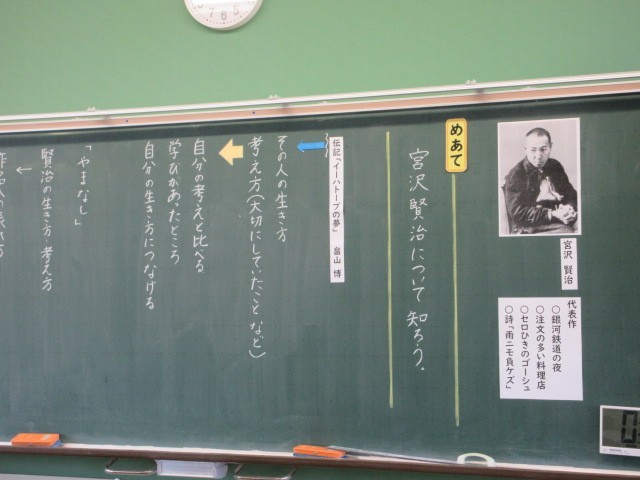 宮沢 賢治
代表作
○銀河鉄道の夜
○注文の多い料理店
○セロひきのゴーシュ
○詩「雨ニモ負ケズ」
めあて
宮沢賢治について知ろう。
伝記「イーハトーブの夢」 畠山 博
その人の生き方
考え方(大切にしていたことなど)
自分の考えと比べる
学びがあったところ
自分の生き方につなげる
「やまなし」
賢治の生き方・考え方
7 6 5